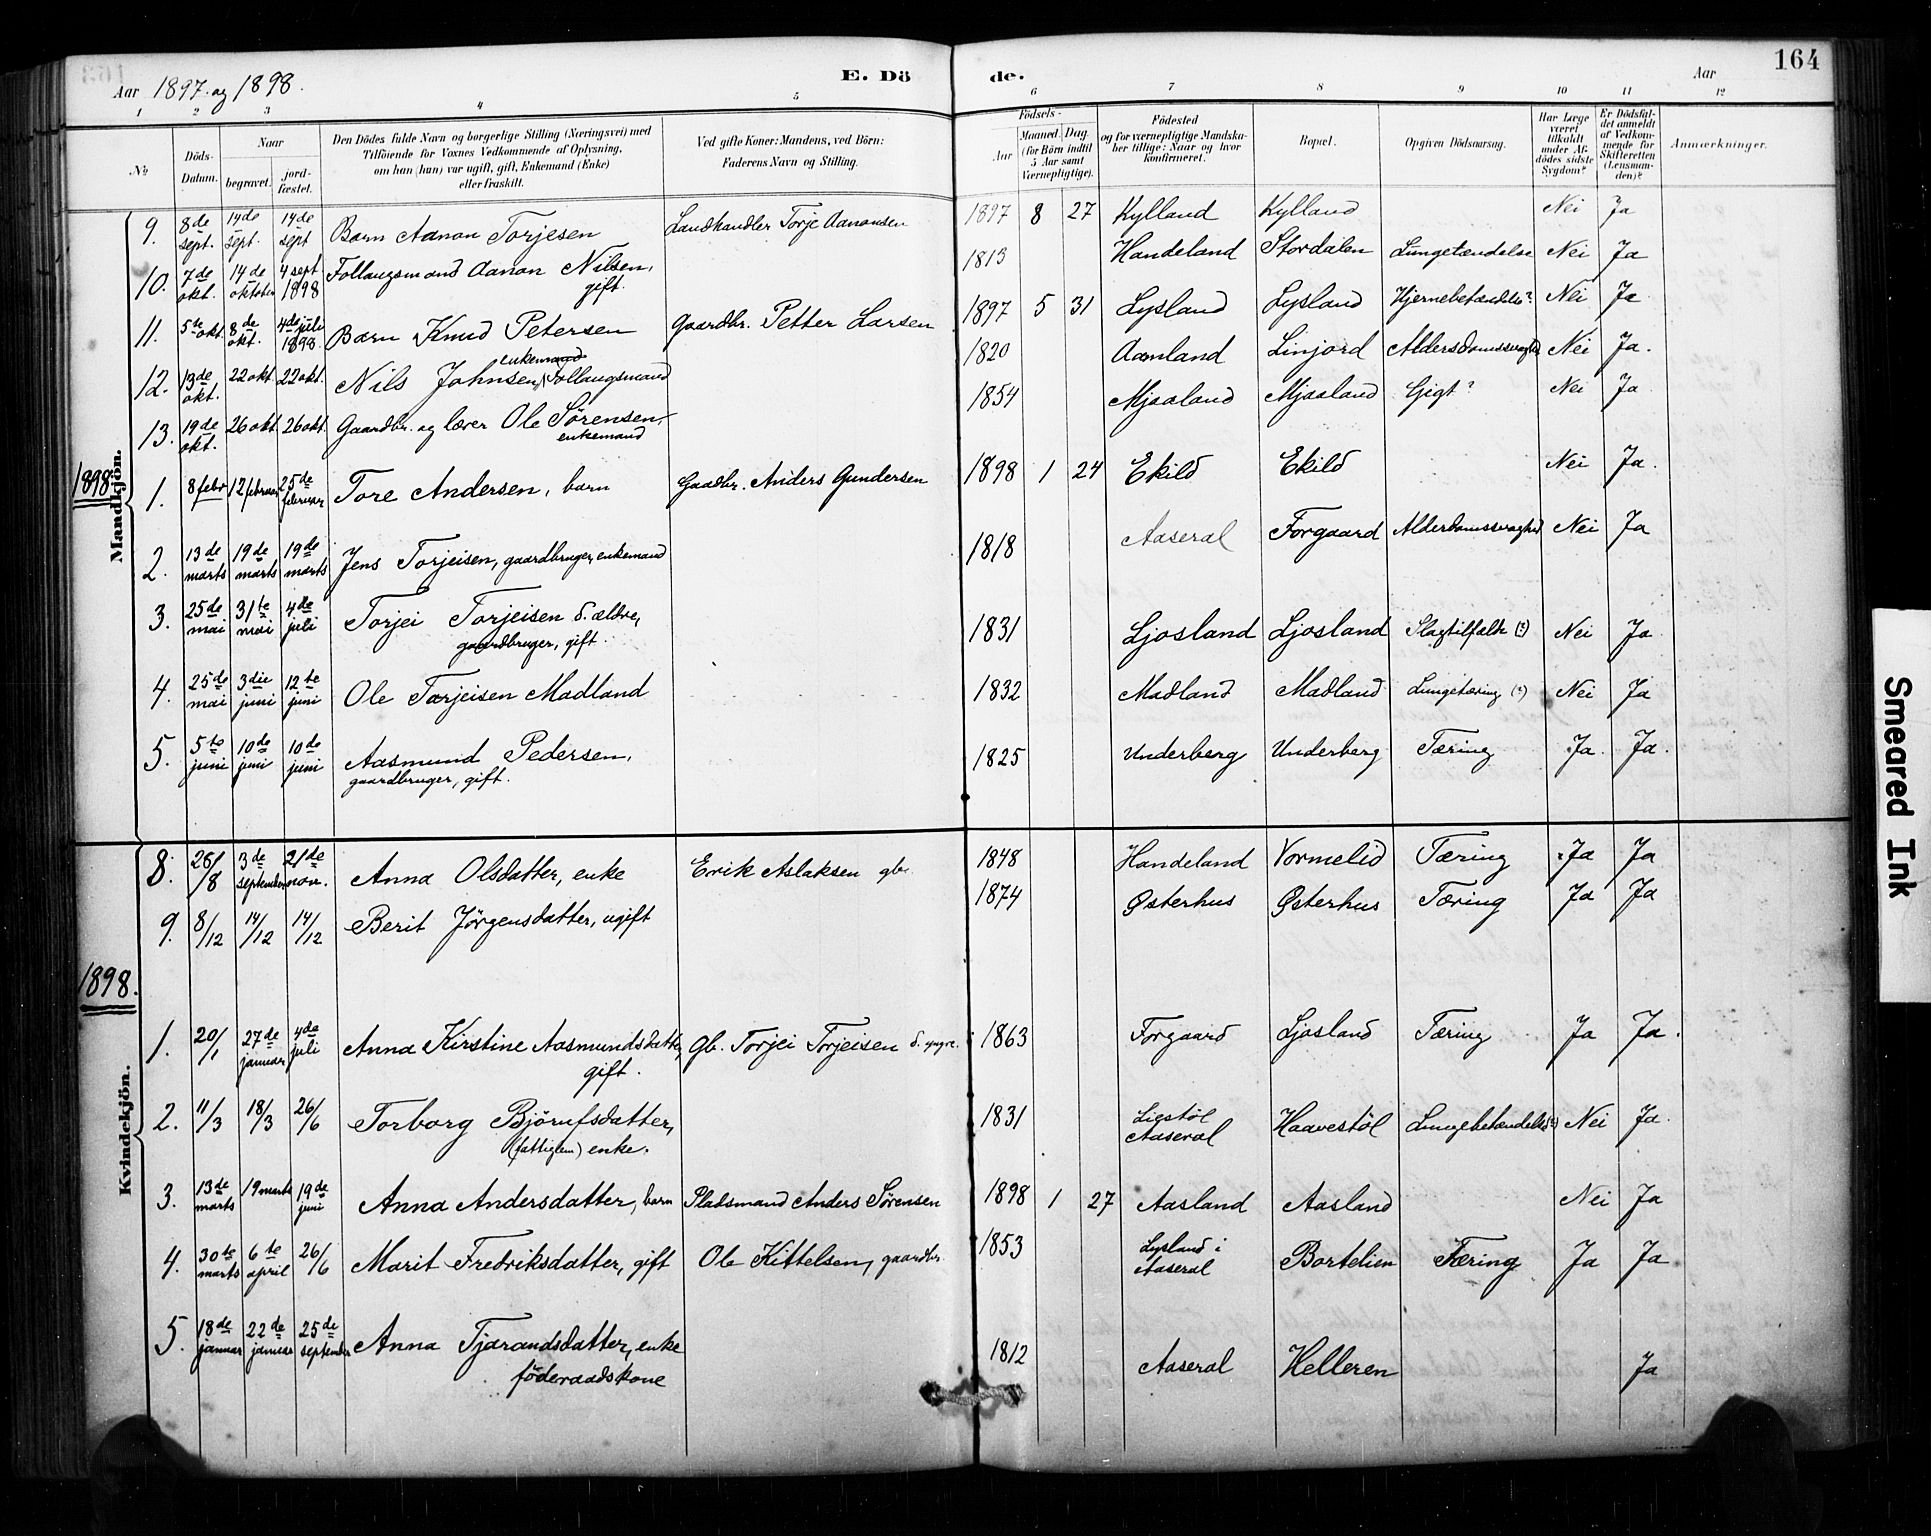 163
Aar 1897 og 1898.
E. Dö
de.
Aar
164
1 2 3 4 5 6 7 8 9 10 11 12
No
Döds-Datum.
Naar
begravet.
jord-fæstet.
Den Dödes fulde Navn og borgerlige Stilling (Næringsvei) med
Tilföiende for Voxnes Vedkommende af Oplysning,
om han (hun) var ugift, gift, Enkemand (Enke)
eller fraskilt.
Ved gifte Koner: Mandens, ved Börn:
Faderens Navn og Stilling.
Födsels-
Aar
Maaned. Dag.
(for Börn indtil
5 Aar samt
Værnepligtige).
Födested
og for værnepligtige Mandska-
ber tillige: Naar og hvor
konfirmeret.
Bopæl.
Opgiven Dödsaarsag.
Har Læge
været
tilkaldt
under Af-
dödes sidste
Sygdom?
Er Dödsfal-
det anmeldt
af Vedkom-
mende for
Skifteretten
(Lensman-
den)?
Anmærkninger.
Mandkjön.
9. 8de sept. 14de sept. 14de sept Barn Aanon Torjesen Landhandler Torje Aanonsen 1897 8 27 Kylland Kylland Nei Ja
10. 7de okt. 14de oktober 4 sept 1898 Follaugsmand Aanon Nilsen, gift. 1813 Handeland Stordalen Lungetændelse Nei Ja
11. 5te okt. 8de okt. 4de juli 1898. Barn Knud Petersen Gaardbr. Petter Larsen 1897 5 31 Lysland Lysland Hjernebetændelse? Nei Ja
12. 13de okt. 22 okt. 22 okt. Nils Johnsen, enkemand Follaugsmand 1820 Aamland Linjord Aldersdomssvaghed Nei Ja.
13. 19de okt. 26 okt. 26 okt. Gaardbr. og lærer Ole Sørensen, enkemand 1854 Mjaaland Mjaaland Gigt? Nei Ja
1898
1. 8 febr 12 februar 25de februar Tore Andersen, barn Gaadbr. Anders Gundersen 1898 1 24 Ekild Ekild Nei Ja.
2. 13de marts 19de marts 19de marts Jens Torjeisen, gaardbruger, enkemand 1818 Aaseral Forgaard Alderdomssvaghed Nei Ja
3. 25de mai 31te mai 4de juli Torjei Torjeisen d. ældre, gaardbruger, gift. 1831 Ljosland Ljosland Slagtilfælde (?) Nei Ja
4. 25de mai 3die juni 12te juni Ole Tarjeisen Madland 1832 Madland Madland Lungetæring (?) Nei Ja
5. 5te juni 10de juni 10de juni Aasmund Pedersen, gaardbruger, gift. 1825 Underberg Underberg Tæring Ja. Ja.
Kvindekjön.
8. 26/8 3de september 21de nov. Anna Olsdatter, enke Erik Aslaksen gbr. 1848 Handeland Vormelid Tæring Ja Ja
9. 8/12 14/12 14/12 Berit Jörgensdatter, ugift 1874 Østerhus Østerhus Tæring Ja Ja
1898.
1. 20/1 27de januar 4de juli Anna Kirstine Aasmundsdatter, gift. Gb. Torjei Torjeisen d. yngre. 1863 Forgaard Ljosland Tæring Ja Ja.
2. 11/3 18/3 26/6 Torborg Björnfsdatter, (fattiglem) enke. 1831 Ligstöl Aaseral Haavestöl Lungebetændelse (?) Nei Ja.
3. 13de marts 19 marts 19de juni Anna Andersdatter, barn Pladsmand Anders Sørensen 1898 1 27 Aasland Aasland Nei Ja
4. 30te marts 6te april 26/6 Marit Fredriksdatter, gift Ole Kittelsen, gaardbr. 1853 Lysland i Aaseral Bortelien Tæring Ja Ja
5. 18de januar 22de januar 25de september Anna Tjarandsdatter, enke föderaadskone 1812 Aaseral Helleren Ja
Smeared Ink